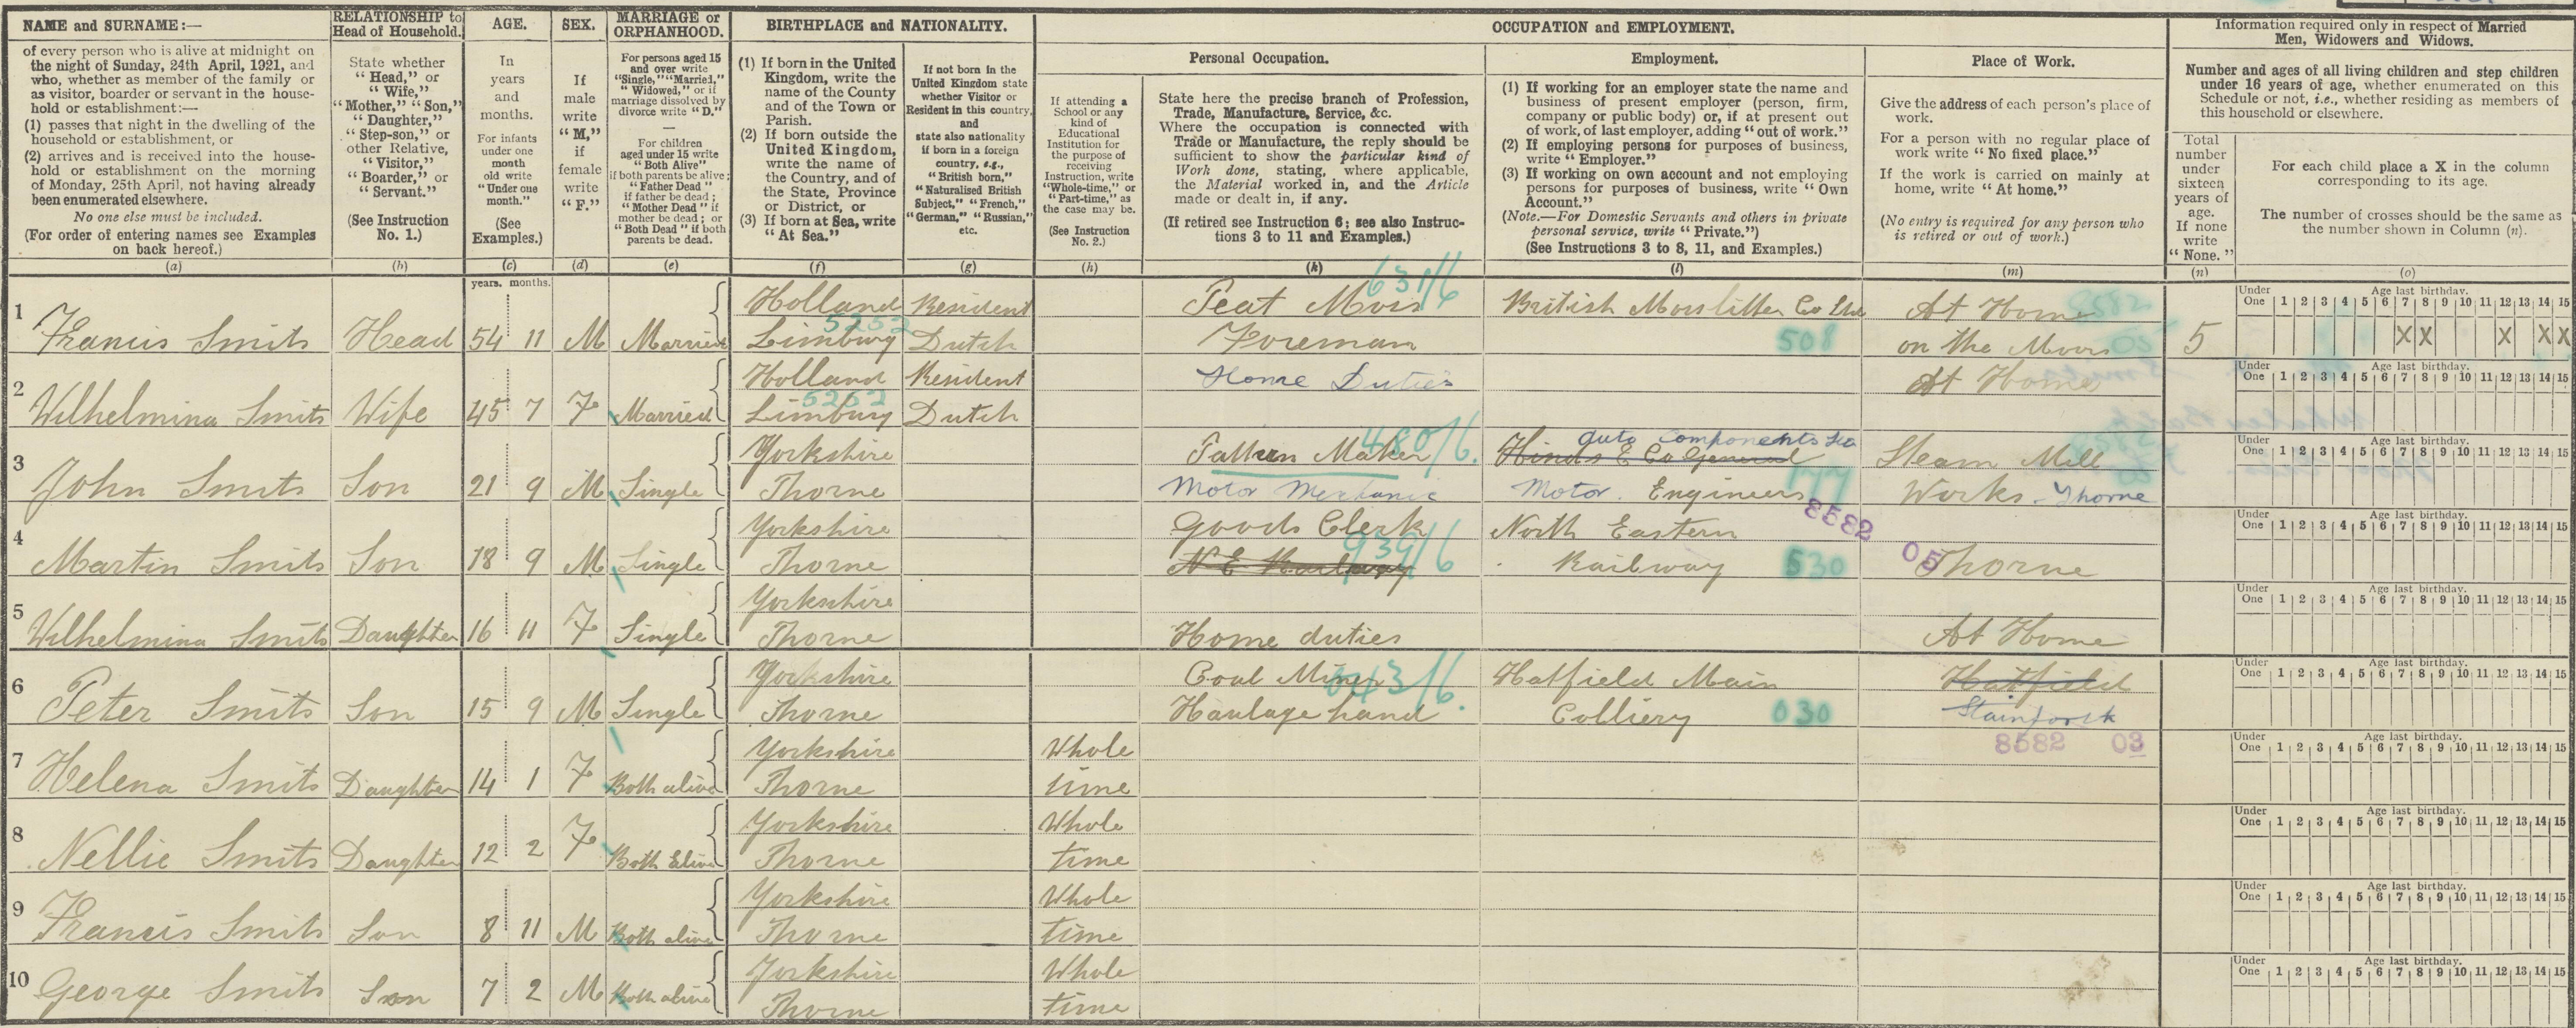 NAME and SURNAME:—
of every person who is alive at midnight on
the night of Sunday, 24th April, 1921, and
who, whether as member of the family or
as visitor, boarder or servant in the house-
hold or establishment:—
(1) passes that night in the dwelling of the
household or establishment, or
(2) arrives and is received into the house-
hold or establishment on the morning
of Monday, 25th April, not having already
been enumerated elsewhere.
No one else must be included.
(For order of entering names see Examples
on back hereof.)
(a)
RELATIONSHIP to
Head of Household.
State whether
"Head," or
"Wife,"
"Mother," "Son,"
"Daughter,"
"Step-son," or
other Relative,
"Visitor,"
"Boarder," or
"Servant."
(See Instruction
No. 1.)
(b)
AGE.
In
years
and
months.
For infants
under one
month
old write
"Under one
month."
(See
Examples.)
(c)
years. months.
SEX.
If
male
write
"M,"
if
female
write
"F."
(d)
MARRIAGE or
ORPHANHOOD.
For persons aged 15
and over write
"Single," "Married,"
"Widowed," or if
marriage dissolved by
divorce write "D."
—
For children
aged under 15 write
"Both Alive"
if both parents be alive;
"Father Dead"
if father be dead;
"Mother Dead" if
mother be dead; or
"Both Dead" if both
parents be dead.
(e)
BIRTHPLACE and NATIONALITY.
(1) If born in the United
Kingdom, write the
name of the County
and of the Town or
Parish.
(2) If born outside the
United Kingdom,
write the name of
the Country, and of
the State, Province
or District, or
(3) If born at Sea, write
"At Sea."
(f)
If not born in the
United Kingdom state
whether Visitor or
Resident in this country,
and
state also nationality
if born in a foreign
country, e.g.,
"British born,"
"Naturalised British
Subject," "French,"
"German," "Russian,"
etc.
(g)
OCCUPATION and EMPLOYMENT.
Personal Occupation.
If attending a
School or any
kind of
Educational
Institution for
the purpose of
receiving
Instruction, write
"Whole-time," or
"Part-time," as
the case may be.
(See Instruction
No. 2.)
(h)
State here the precise branch of Profession,
Trade, Manufacture, Service, &c.
Where the occupation is connected with
Trade or Manufacture, the reply should be
sufficient to show the particular kind of
Work done, stating, where applicable,
the Material worked in, and the Article
made or dealt in, if any.
(If retired see Instruction 6; see also Instruc-
tions 3 to 11 and Examples.)
(k)
Employment.
(1) If working for an employer state the name and
business of present employer (person, firm,
company or public body) or, if at present out
of work, of last employer, adding "out of work."
(2) If employing persons for purposes of business,
write "Employer."
(3) If working on own account and not employing
persons for purposes of business, write "Own
Account."
(Note.—For Domestic Servants and others in private
personal service, write "Private.")
(See Instructions 3 to 8, 11, and Examples.)
(l)
Place of Work.
Give the address of each person's place of
work.
For a person with no regular place of
work write "No fixed place."
If the work is carried on mainly at
home, write "At home."
(No entry is required for any person who
is retired or out of work.)
(m)
Information required only in respect of Married
Men, Widowers and Widows.
Number and ages of all living children and step children
under 16 years of age, whether enumerated on this
Schedule or not, i.e., whether residing as members of
this household or elsewhere.
Total
number
under
sixteen
years of
age.
If none
write
"None."
(n)
For each child place a X in the column
corresponding to its age.
The number of crosses should be the same as
the number shown in Column (n).
(o)
1 Francis Smits Head 54 11 M Married Holland Limburg Resident Dutch Peat Moss Foreman 631/6 British Moss litter Co Ltd 508 At Home on the Moors 5 X X X X X
Under One Age last birthday. 1 2 3 4 5 6 7 8 9 10 11 12 13 14 15
2 Wilhelmina Smits Wife 45 7 F Married Holland Limburg 5252 Resident Dutch Home Duties At Home
Under One Age last birthday. 1 2 3 4 5 6 7 8 9 10 11 12 13 14 15
3 John Smits Son 21 9 M Single Yorkshire Thorne Pattern Maker 480/6. Motor Mechanic Hinds & Co General auto components Motor Engineers 177 Steam Mill Works - Thorne
Under One Age last birthday. 1 2 3 4 5 6 7 8 9 10 11 12 13 14 15
4 Martin Smits Son 18 9 M Single Yorkshire Thorne Goods Clerk N E Railway 939/6 North Eastern Railway 530 8582 05 Thorne
Under One Age last birthday. 1 2 3 4 5 6 7 8 9 10 11 12 13 14 15
5 Wilhelmina Smits Daughter 16 11 F Single Yorkshire Thorne Home duties At Home
Under One Age last birthday. 1 2 3 4 5 6 7 8 9 10 11 12 13 14 15
6 Peter Smits Son 15 9 M Single Yorkshire Thorne Coal Miner Haulage hand 043/6. Hatfield Main Colliery 030 Hatfield Stainforth 8582 03
Under One Age last birthday. 1 2 3 4 5 6 7 8 9 10 11 12 13 14 15
7 Helena Smits Daughter 14 1 F Both alive Yorkshire Thorne Whole time
Under One Age last birthday. 1 2 3 4 5 6 7 8 9 10 11 12 13 14 15
8 Nellie Smits Daughter 12 2 F Both Alive Yorkshire Thorne Whole time
Under One Age last birthday. 1 2 3 4 5 6 7 8 9 10 11 12 13 14 15
9 Francis Smits Son 8 11 M Both alive Yorkshire Thorne Whole time
Under One Age last birthday. 1 2 3 4 5 6 7 8 9 10 11 12 13 14 15
10 George Smits Son 7 2 M Both alive Yorkshire Thorne Whole time
Under One Age last birthday. 1 2 3 4 5 6 7 8 9 10 11 12 13 14 15